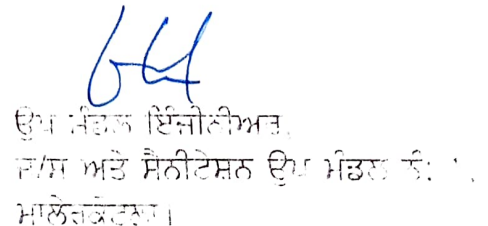 ਉਪ ਮੰਡਲ ਇੰਜੀਨੀਅਰ,
ਜ/ਸ ਅਤੇ ਸੈਨੀਟੇਸ਼ਨ ਉਪ ਮੰਡਲ ਨੰ:
ਮਾਲੇਰਕੋਟਲਾ।